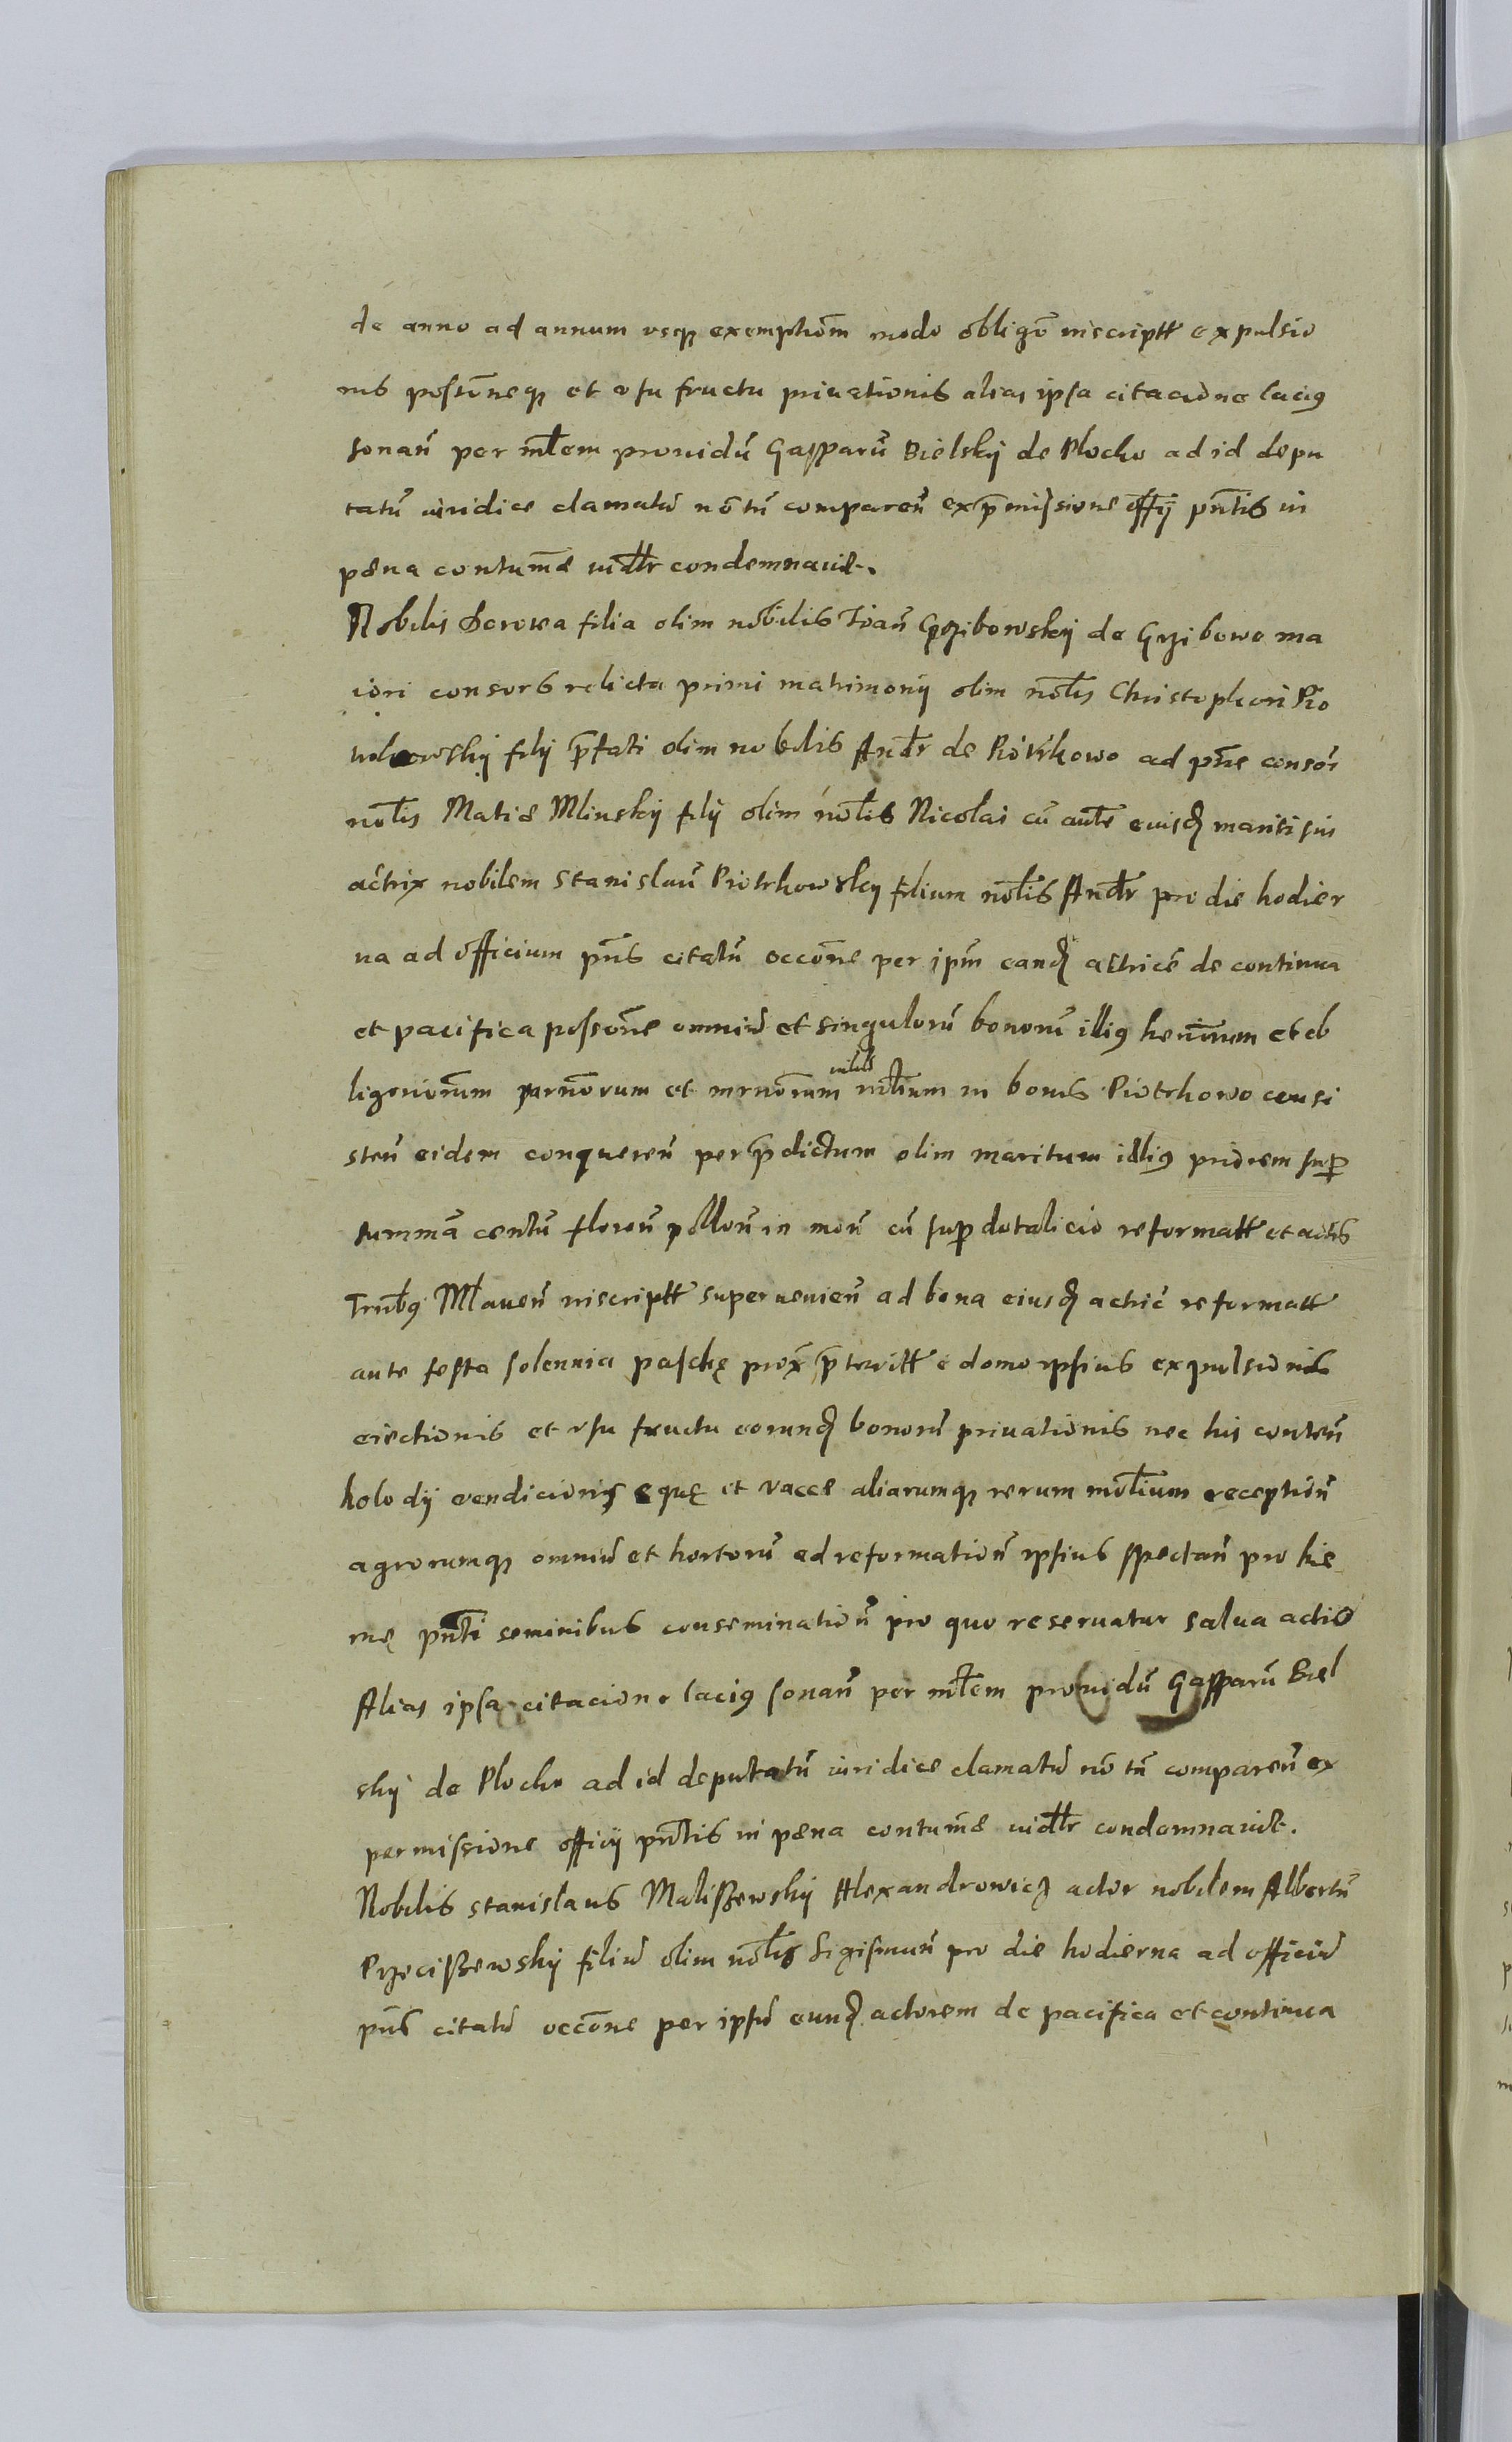 de anno ad annum vsq₃ exemptiōm modo obligō inscriptt expulsio
nis possiōneq₃ et vsu fructu priuationis alias ipsa citacione laciꝰ
sonan̄ per mīlem prouidū Gasparū Bielskij de Plocko ad id depu
tatū iuridice clamatū nō tn̄ comparen̄ ex p̄missione offīj pn̄tis in
pæna contum̄æ
condemnauit.
Nobilis Dorota filia olim nobilis Ioan̄ Grzibowskij de Grzibowo ma
iori consors relicta primi matrimonij olim nob̄lis Christophori Pio
trkowskij filij p̄fati olim nobilis Andr̄ de Piotrkowo ad pn̄s consor
nob̄lis Matiæ Mlinskij filij olim nob̄lis Nicolai cū aut̄e eiusd̄ mariti sui
actrix nobilem Stanislaū Piotrkowsky filium nob̄lis Andr̄ pro die hodier
na ad officium pn̄s citatū occōne per ipm̄ eand̄ actricē de continua
et pacifica possōne omniū et singulorū bonorū illiꝰ
et ob
ligo
rum
et
in bonis Piotrkowo consi
sten̄ eidem conqueren̄ per p̄dictum olim maritum illiꝰ priorem sup̄
summā centū floren̄ pollon̄ in mon̄ cū sup̄ dotalicio reformatt et actis
Mlauen̄ inscriptt superuenien̄ ad bona eiusd̄ actric̄ reformatt
ante festa solennia paschę prox̄ p̄teritt e domo ipsius expulsionis
eiectionis et vsu fructu eorund̄ bonorū priuationis nec his conten̄
holodij vendicionis equę et vaccæ aliarumq₃ rerum mob̄lium reception̄
agrorumq₃ omniū et hortorū ad reformation̄ ipsius spectan̄ pro hie
mę pn̄ti seminibus conseminatiōn pro quo reseruatur salua actio
Alias ipsa citacione laciꝰ sonan̄ per mīlem prouidū Gasparū Biel
skij de Plocko ad id deputatū iuridice clamatū nō tn̄ comparen̄ ex
permissione officij pn̄tis in pæna contum̄æ
condemnauit.
Nobilis Stanislaus Maliszewskij Alexandrowicz actor nobilem Albertū
Przeciszewskij filiū olim nob̄lis Sigismun̄ pro die hodierna ad officiū
pn̄s citatū occōne per ipsū eund̄ actorem de pacifica et continua